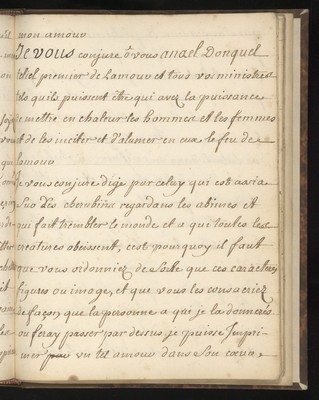 mon amour
Je vous conjure ô vous anael Donquel
teliel premier de Lamour et tous vos ministres
tels quils puissent être qui avez la puissance
de mettre en chaleur les hommes et les femmes
et de les inciter et dalumer en eux le feu de
lamour
Je vous conjure dige par celuy qui est assis
Sur Les cherubins regardans les abimes et
qui fait trembler le monde et a que toutes les
creatures obeissent, cest pourquoy il faut
que vous ordonniez de Sorte que ces caracteres
figures ou image, et que vous les consacriez
de façon, que la personne a qui je la donnerois
ou feray passer par dessus je puisse Impri-
mer un tel amour dans Son coeur